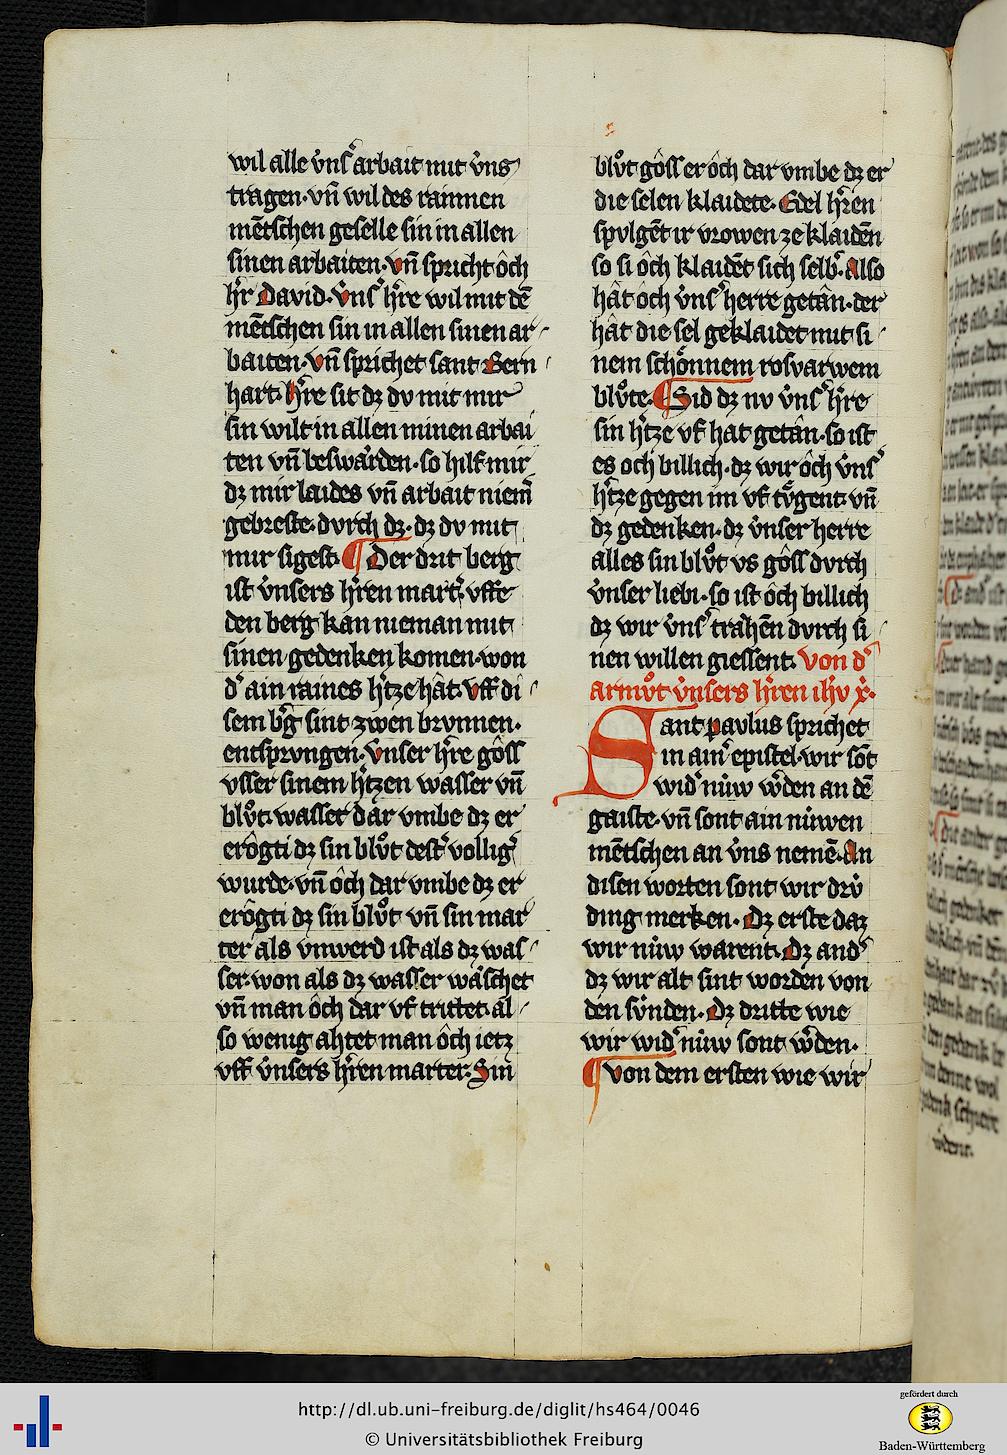 wil alle v̇nsˀ arbait mit v̇ns
tragen· vn̄ wil des rainnen
mētschen geselle sin in allen
sinen arbaiten· vn̄ spricht ôch
hˀr David· v̇nsˀ hˀre wil mit dē
mētschen sin in allen sinen ar⸗
baiten· vn̄ sprichet sant Bern⸗
hart· hˀre sit dz dv mit mir
sin wilt in allen minen arbai
ten vn̄ beswården· so hilf mir
dz mir laides vn̄ arbait niem̄
gebreste· dvrch dz· dz dv mit
mir sigest· ¶ Der drit berg
ist v̇nsers hˀren martˀ· vffe
den berg kan nieman mit
sinen gedenken komen· won
dˀ ain raines hˀtze hât· vff di⸗
sem bˀg sint zwen brvnnen·
entsprvngen· v̇nser hˀre gôss
vsser sinem hˀtzen wasser vn̄
blůt· wasser dar vmbe dz er
erôgti dz sin blůt destˀ völligˀ
wurde· vn̄ ôch dar vmbe dz er
erôgti dz sin blůt vn̄ sin mar
ter als vnwerd ist als dz was⸗
ser· won als dz wasser wåschet
vn̄ man ôch dar vf trittet· al⸗
so wenig ahtet man ôch ietz
vff v̇nsers hˀren marter· Sin
blůt gôss er ôch dar vmbe dz er
die selen klaidete· Edel hˀren
spvlgēt ir vrowen ze klaidēn
so si ôch klaidēt sich selbˀ· Also
hât ôch v̇nsˀ herre getân· der
hât die sel geklaidet mit si⸗
nem schönnem rosvarwem
blůte· ¶ Sid dz nv v̇nsˀ hˀre
sin hˀtze vf hat getân· so ist
es och billich· dz wir ôch v̇nsˀ
hˀtze gegen im vf tv̊gent· vn̄
dz gedenken· dz v̇nser herre
alles sin blůt vs gôss dvrch
v̇nser liebi· so ist ôch billich
dz wir v̇nsˀ trahēn dvrch si⸗
nen willen giessent· Von dˀ
armůt v̇nsers hˀren ihv x̄·
Sant pavlus sprichet
in ainˀ epistel· wir sōt
widˀ nu̇w wˀden an dē
gaiste· vn̄ sont ain nu̇wen
mētschen an v̇ns nemē· An
disen worten sont wir dru̇
ding merken· Dz erste daz
wir nu̇w warent· Dz andˀ
dz wir alt sint worden von
den sv̇nden· Dz dritte wie
wir widˀ nu̇w sont wˀden·
¶ von dem ersten wie wir
http://dl.ub.uni-freiburg.de/diglit/hs464/0046
© Universitätsbibliothek Freiburg
gefördert durch
Baden-Württemberg